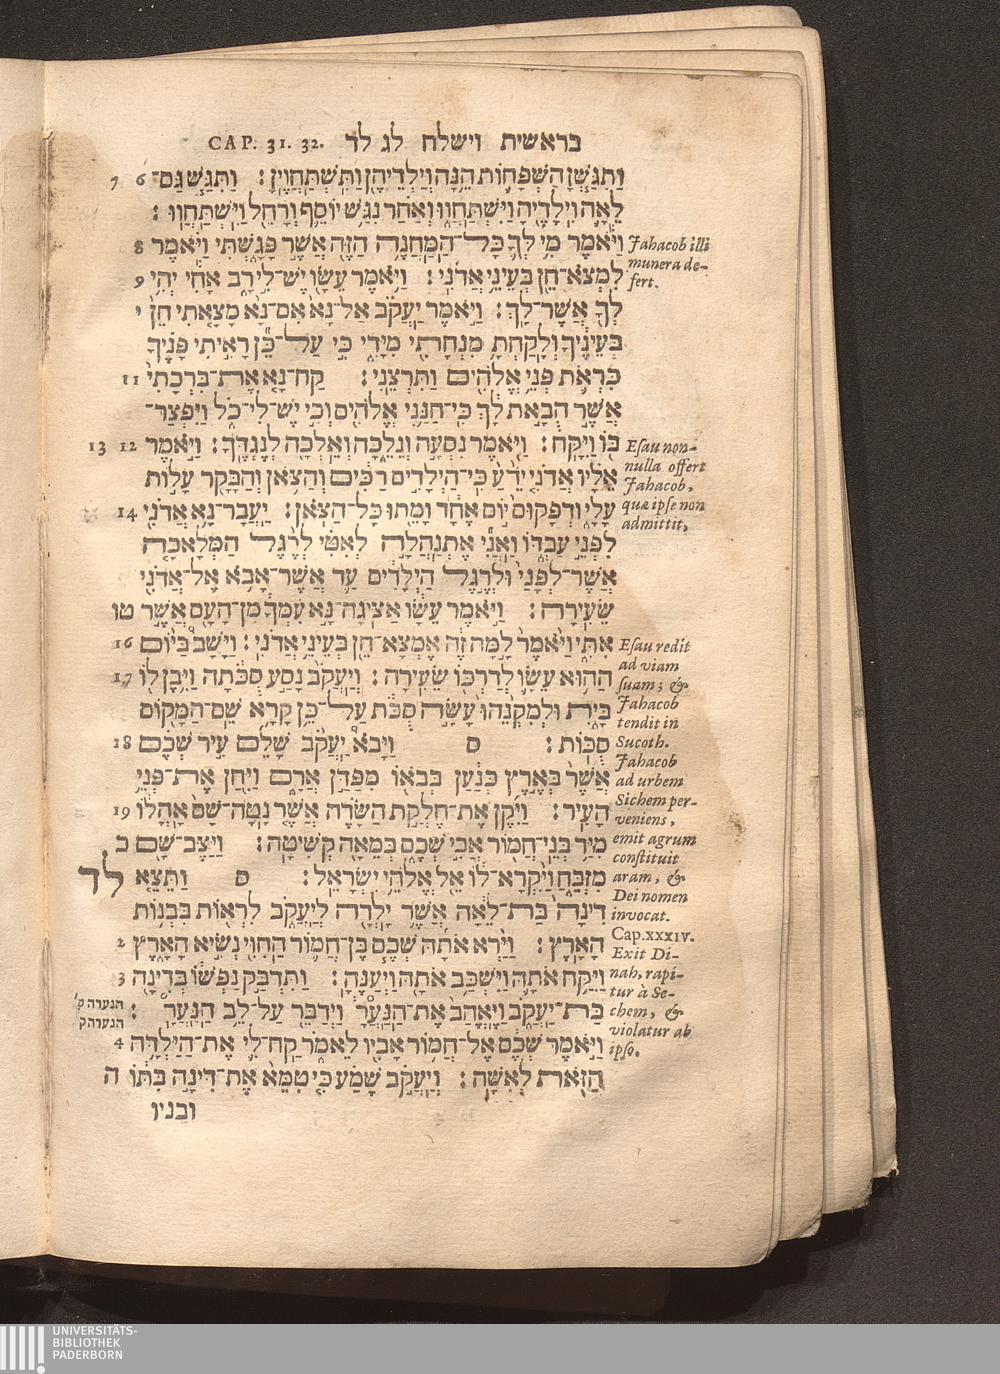 בראשית וישלח לג לד CAP. 31. 32.
וַתִּגַּשְׁןָ הַשְּׁפָחוֹת הֵנָּה וְיַלְדֵיהֶן וַתִּשְׁתַּחֲוֶיןָ׃ וַתִּגַּשׁ גַּם־ 6 7
לֵאָה וִילָדֶיהָ וַיִּשְׁתַּחֲווּ וְאַחַר נִגַּשׁ יוֹסֵף וְרָחֵל וַיִּשְׁתַּחֲווּ׃
וַיֹּאמֶר מִי לְךָ כָּל־הַמַּחֲנֶה הַזֶּה אֲשֶׁר פָּגָשְׁתִּי וַיֹּאמֶר 8
לִמְצֹא־חֵן בְּעֵינֵי אֲדֹנִי׃ וַיֹּאמֶר עֵשָׂו יֶשׁ־לִי רָב אָחִי יְהִי 9
לְךָ אֲשֶׁר־לָךְ׃ וַיֹּאמֶר יַעֲקֹב אַל־נָא אִם־נָא מָצָאתִי חֵן י
בְּעֵינֶיךָ וְלָקַחְתָּ מִנְחָתִי מִיָּדִי כִּי עַל־כֵּן רָאִיתִי פָנֶיךָ
כִּרְאֹת פְּנֵי אֱלֹהִים וַתִּרְצֵנִי׃ קַח־נָא אֶת־בִּרְכָתִי 11
אֲשֶׁר הֻבָאת לָךְ כִּי־חַנַּנִי אֱלֹהִים וְכִי יֶשׁ־לִי־כֹל וַיִּפְצַר־
בּוֹ וַיִּקָּח׃ וַיֹּאמֶר נִסְעָה וְנֵלֵכָה וְאֵלְכָה לְנֶגְדֶּךָ׃ וַיֹּאמֶר 12 13
אֵלָיו אֲדֹנִי יֹדֵעַ כִּי־הַיְלָדִים רַכִּים וְהַצֹּאן וְהַבָּקָר עָלוֹת
עָלָי וּדְפָקוּם יוֹם אֶחָד וָמֵתוּ כָּל־הַצֹּאן׃ יַעֲבָר־נָא אֲדֹנִי 14
לִפְנֵי עַבְדּוֹ וַאֲנִי אֶתְנַהֲלָה לְאִטִּי לְרֶגֶל הַמְּלָאכָה
אֲשֶׁר־לְפָנַי וּלְרֶגֶל הַיְלָדִים עַד אֲשֶׁר־אָבֹא אֶל־אֲדֹנִי
שֵׂעִירָה׃ וַיֹּאמֶר עֵשָׂו אַצִּיגָה־נָּא עִמְּךָ מִן־הָעָם אֲשֶׁר טו
אִתִּי וַיֹּאמֶר לָמָּה זֶּה אֶמְצָא־חֵן בְּעֵינֵי אֲדֹנִי׃ וַיָּשָׁב בַּיּוֹם 16
הַהוּא עֵשָׂו לְדַרְכּוֹ שֵׂעִירָה׃ וְיַעֲקֹב נָסַע סֻכֹּתָה וַיִּבֶן לוֹ 17
בָּיִת וּלְמִקְנֵהוּ עָשָׂה סֻכֹּת עַל־כֵּן קָרָא שֵׁם־הַמָּקוֹם
סֻכּוֹת׃ ס וַיָּבֹא יַעֲקֹב שָׁלֵם עִיר שְׁכֶם 18
אֲשֶׁר בְּאֶרֶץ כְּנַעַן בְּבֹאוֹ מִפַּדַּן אֲרָם וַיִּחַן אֶת־פְּנֵי
הָעִיר׃ וַיִּקֶן אֶת־חֶלְקַת הַשָּׂדֶה אֲשֶׁר נָטָה־שָׁם אָהֳלוֹ 19
מִיַּד בְּנֵי־חֲמוֹר אֲבִי שְׁכֶם בְּמֵאָה קְשִׂיטָה׃ וַיַּצֶּב־שָׁם כ
מִזְבֵּחַ וַיִּקְרָא־לוֹ אֵל אֱלֹהֵי יִשְׂרָאֵל׃ ס וַתֵּצֵא לד
דִינָה בַּת־לֵאָה אֲשֶׁר יָלְדָה לְיַעֲקֹב לִרְאוֹת בִּבְנוֹת
הָאָרֶץ׃ וַיַּרְא אֹתָהּ שְׁכֶם בֶּן־חֲמוֹר הַחִוִּי נְשִׂיא הָאָרֶץ 2
וַיִּקַּח אֹתָהּ וַיִּשְׁכַּב אֹתָהּ וַיְעַנֶּהָ׃ וַתִּדְבַּק נַפְשׁוֹ בְּדִינָה 3
בַּת־יַעֲקֹב וַיֶּאֱהַב אֶת־הַנַּעֲרָ וַיְדַבֵּר עַל־לֵב הַנַּעֲרָ׃
וַיֹּאמֶר שְׁכֶם אֶל־חֲמוֹר אָבִיו לֵאמֹר קַח־לִי אֶת־הַיַּלְדָּה 4
הַזֹּאת לְאִשָּׁה׃ וְיַעֲקֹב שָׁמַע כִּי טִמֵּא אֶת־דִּינָה בִתּוֹ ה
ובניו
הנערה ק'
הנערה ק
Jahacob illi
munera de-
fert.
Esau non-
nulla offert
Jahacob,
quæ ipse non
admittit,
Esau redit
ad viam
suam; &
Jahacob
tendit in
Sucoth.
Jahacob
ad urbem
Sichem per-
veniens,
emit agrum
constituit
aram, &
Dei nomen
invocat.
Cap.xxxiv.
Exit Di-
nah, rapi-
tur à Se-
chem, &
violatur ab
ipso.
UNIVERSITÄTS-
BIBLIOTHEK
PADERBORN